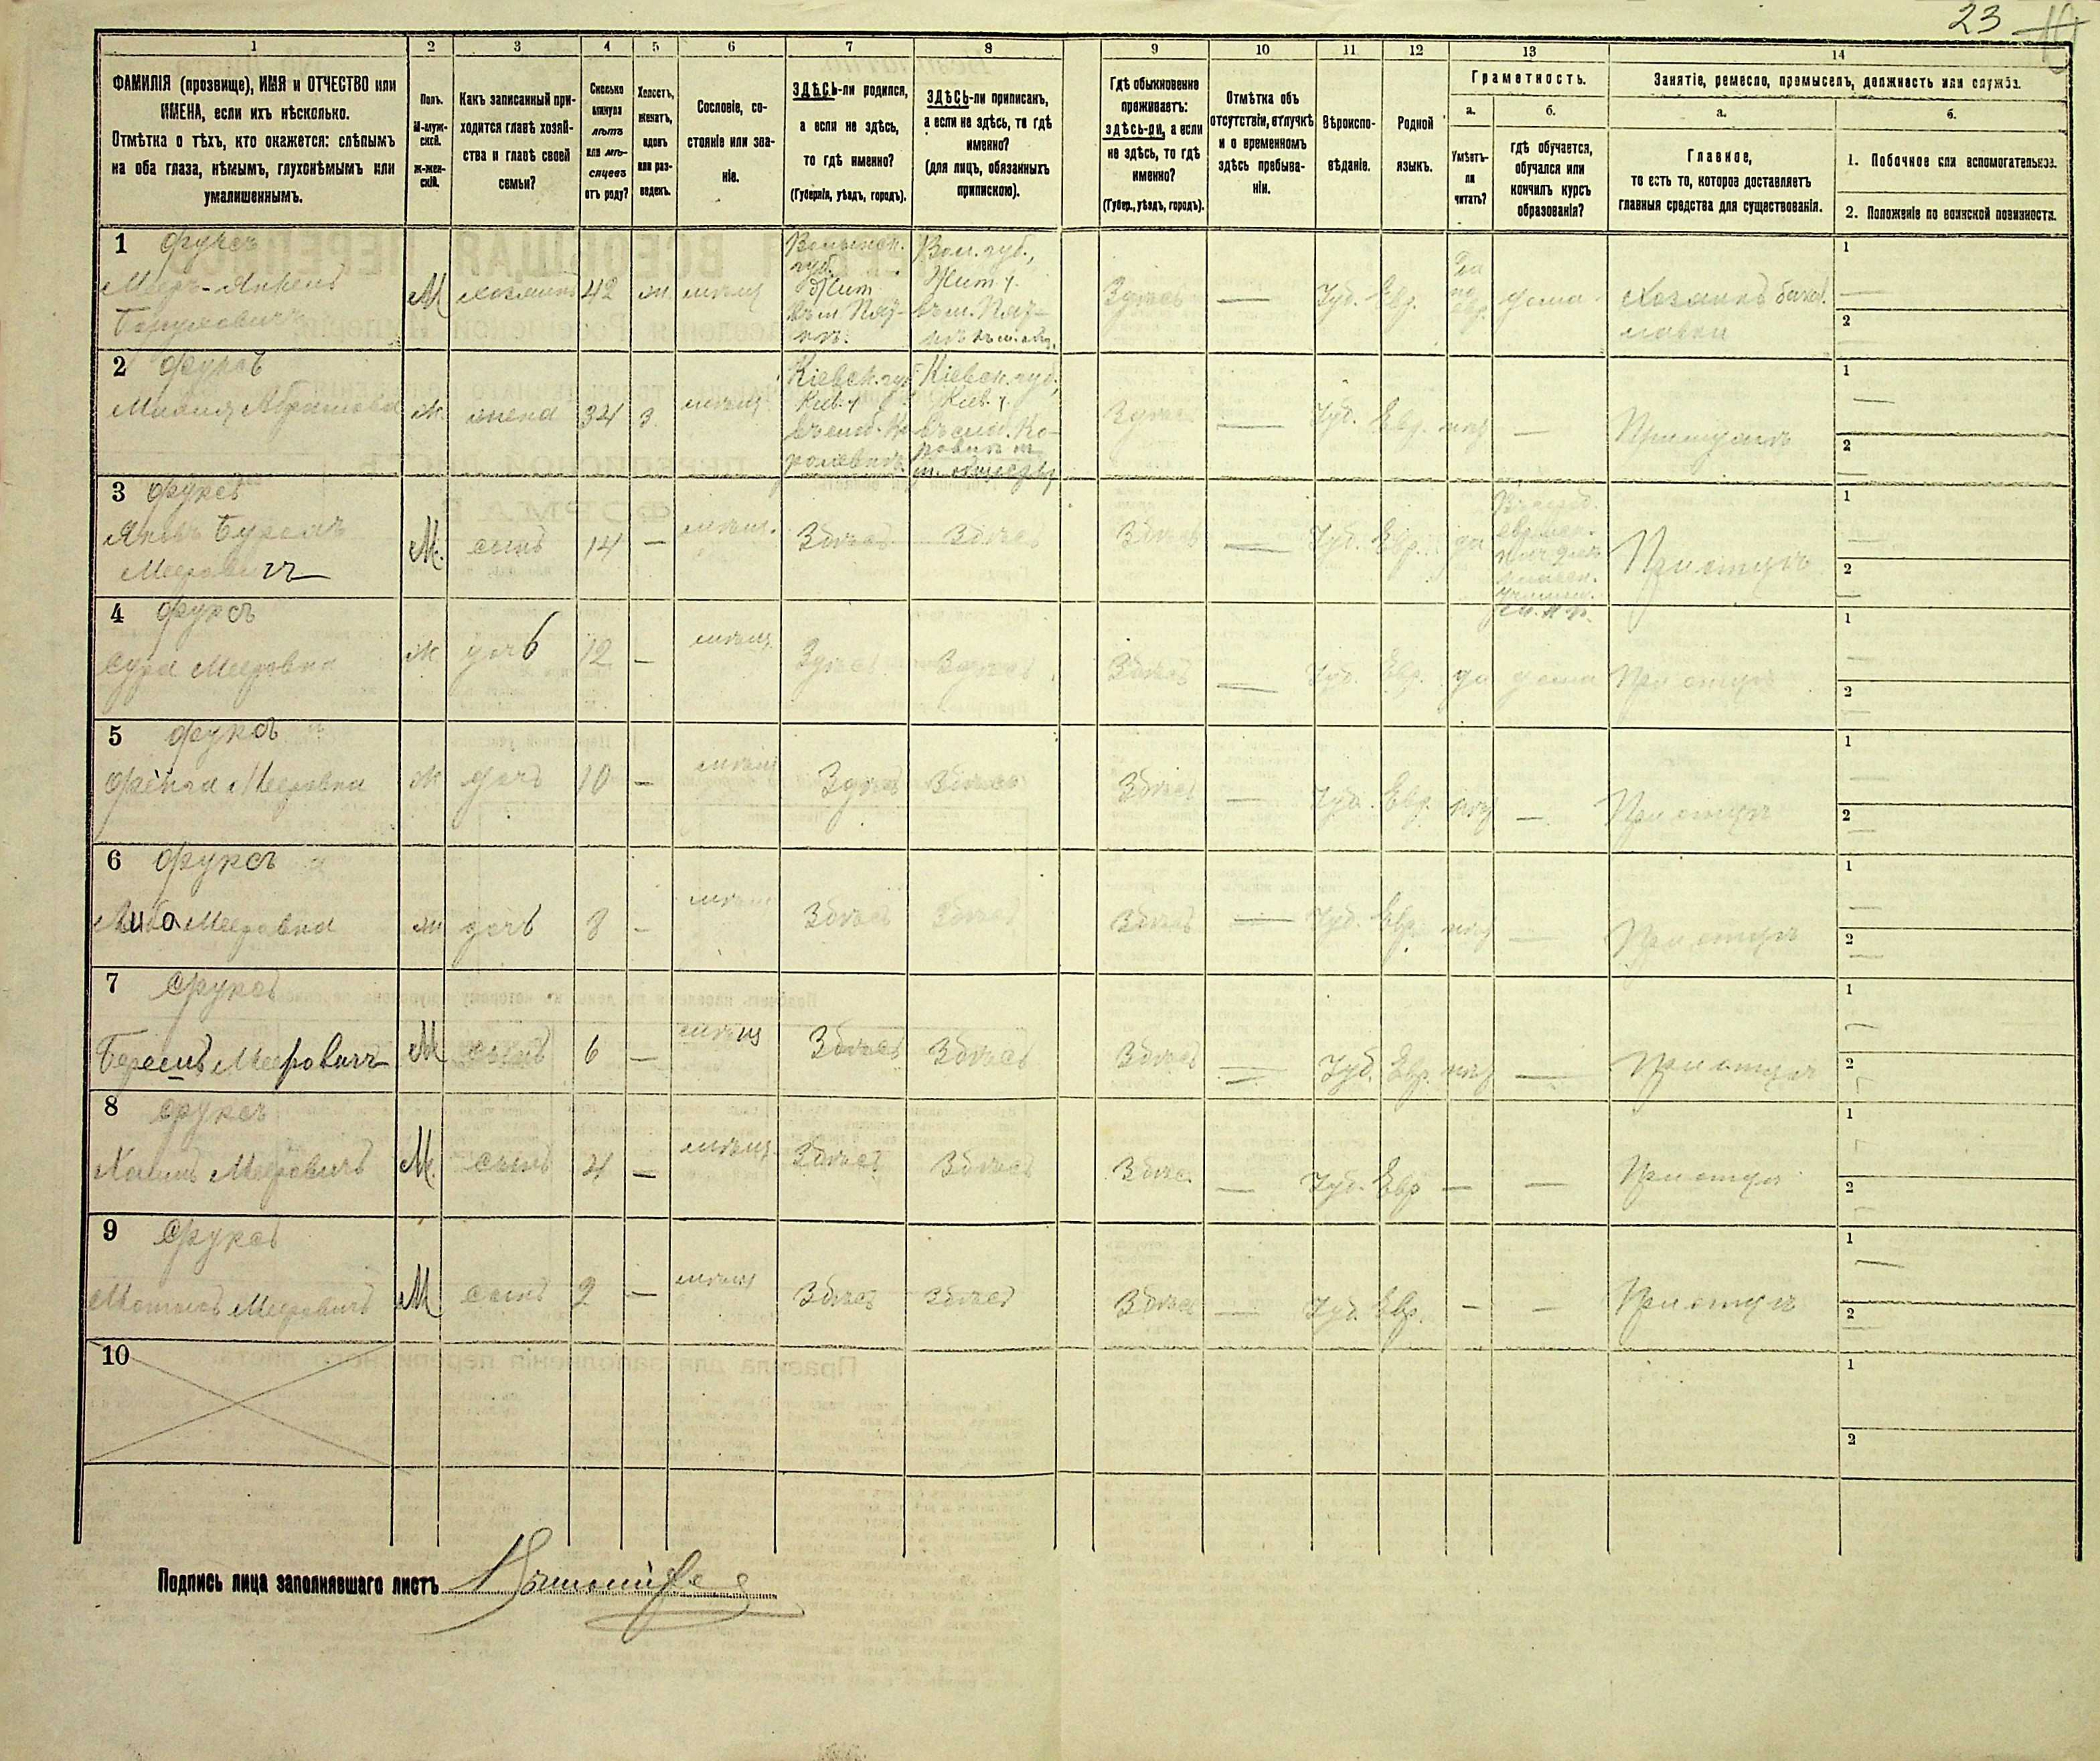 23
1 2 3 4 5 6 7 8 9 10 11 12 13 14
ФАМИЛІЯ (прозвище), ИМЯ и ОТЧЕСТВО или
ИМЕНА, если ихъ нѣсколько.
Отмѣтка о тѣхъ, кто окажется: слѣпымъ
на оба глаза, нѣмымъ, глухонѣмымъ или
умалишеннымъ.
Полъ.
М-муж-
ской.
ж-жен-
скій.
Какъ записанный при-
ходится главѣ хозяй-
ства и главѣ своей
семьи?
Сколько
минуло
лѣтъ
или мѣ-
сяцевъ
отъ роду?
Холостъ,
женатъ,
вдовъ
или раз-
веденъ.
Сословіе, со-
стояніе или зва-
ніе.
ЗДѢСЬ-ли родился,
а если не здѣсь,
то гдѣ именно?
(Губернія, уѣздъ, городъ).
ЗДѢСЬ-ли приписанъ,
а если не здѣсь, то гдѣ
именно?
(для лицъ, обязанныхъ
припискою).
Гдѣ обыкновенно
проживаетъ:
здѣсь-ли, а если
не здѣсь, то гдѣ
именно?
(Губер., уѣздъ, городъ).
Отмѣтка объ
отсутствіи, отлучкѣ
и о временномъ
здѣсь пребыва-
ніи.
Вѣроиспо-
вѣданіе.
Родной
языкъ.
Грамотность.
а.
Умѣетъ-
ли
читать?
б.
гдѣ обучается,
обучался или
кончилъ курсъ
образованія?
Занятіе, ремесло, промыселъ, должность или служба.
а.
Главное,
то есть то, которое доставляетъ
главныя средства для существованія.
б.
1. Побочное или вспомогательное.
2. Положеніе по воинской повинности.
1 Фуксъ
Меръ-Янкель
Боруховичъ
М хозяинъ 42 ж. мѣщ.
Волынск.
губ.
Жит.
Вол. губ.,
Жит. у.
Здѣсь — Іуд. Евр. дома
Хозяинъ бакал.
лавки
1 —
2
2 Фуксъ
Абрамова
ж. жена 34 з. мѣщ.
Кіевск. губ.
Кіев. у.
Кіевск. губ.,
Кіев. у.
Здѣсь — Іуд. Евр. нѣт —
При мужѣ
1 —
2 —
3 Фуксъ
Меерович
М. сынъ 14 — мѣщ. Здѣсь Здѣсь Здѣсь — Іуд. Евр. да
При отцѣ
1 —
2 —
4 Фуксъ
Сура Мееровна
ж дочь 12 — мѣщ. Здѣсь Здѣсь Здѣсь — Іуд. Евр. да дома При отцѣ
1 —
2 —
5 Фуксъ
Фейга Мееровна
ж дочь 10 — мѣщ Здѣсь Здѣсь Здѣсь — Іуд. Евр. нѣт — При отцѣ
1 —
2 —
6 Фуксъ
Либа Мееровна
ж дочь 8 — мѣщ Здѣсь Здѣсь Здѣсь — Іуд. Евр. нѣт — При отцѣ
1 —
2 —
7 Фуксъ
Мееровичъ
М сынъ 6 — мѣщ Здѣсь Здѣсь Здѣсь — Іуд. Евр. нѣт — При отцѣ
1 —
2
8 Фуксъ
Хаимъ Мееровичъ
М. сынъ 4 — мѣщ. Здѣсь Здѣсь Здѣсь — Іуд. Евр — — При отцѣ
1
2
9 Фуксъ
Мееровичъ
М сынъ 2 — мѣщ Здѣсь Здѣсь Здѣсь — Іуд. Евр. — — При отцѣ
1 —
2 —
10
1
2
Подпись лица заполнявшаго листъ